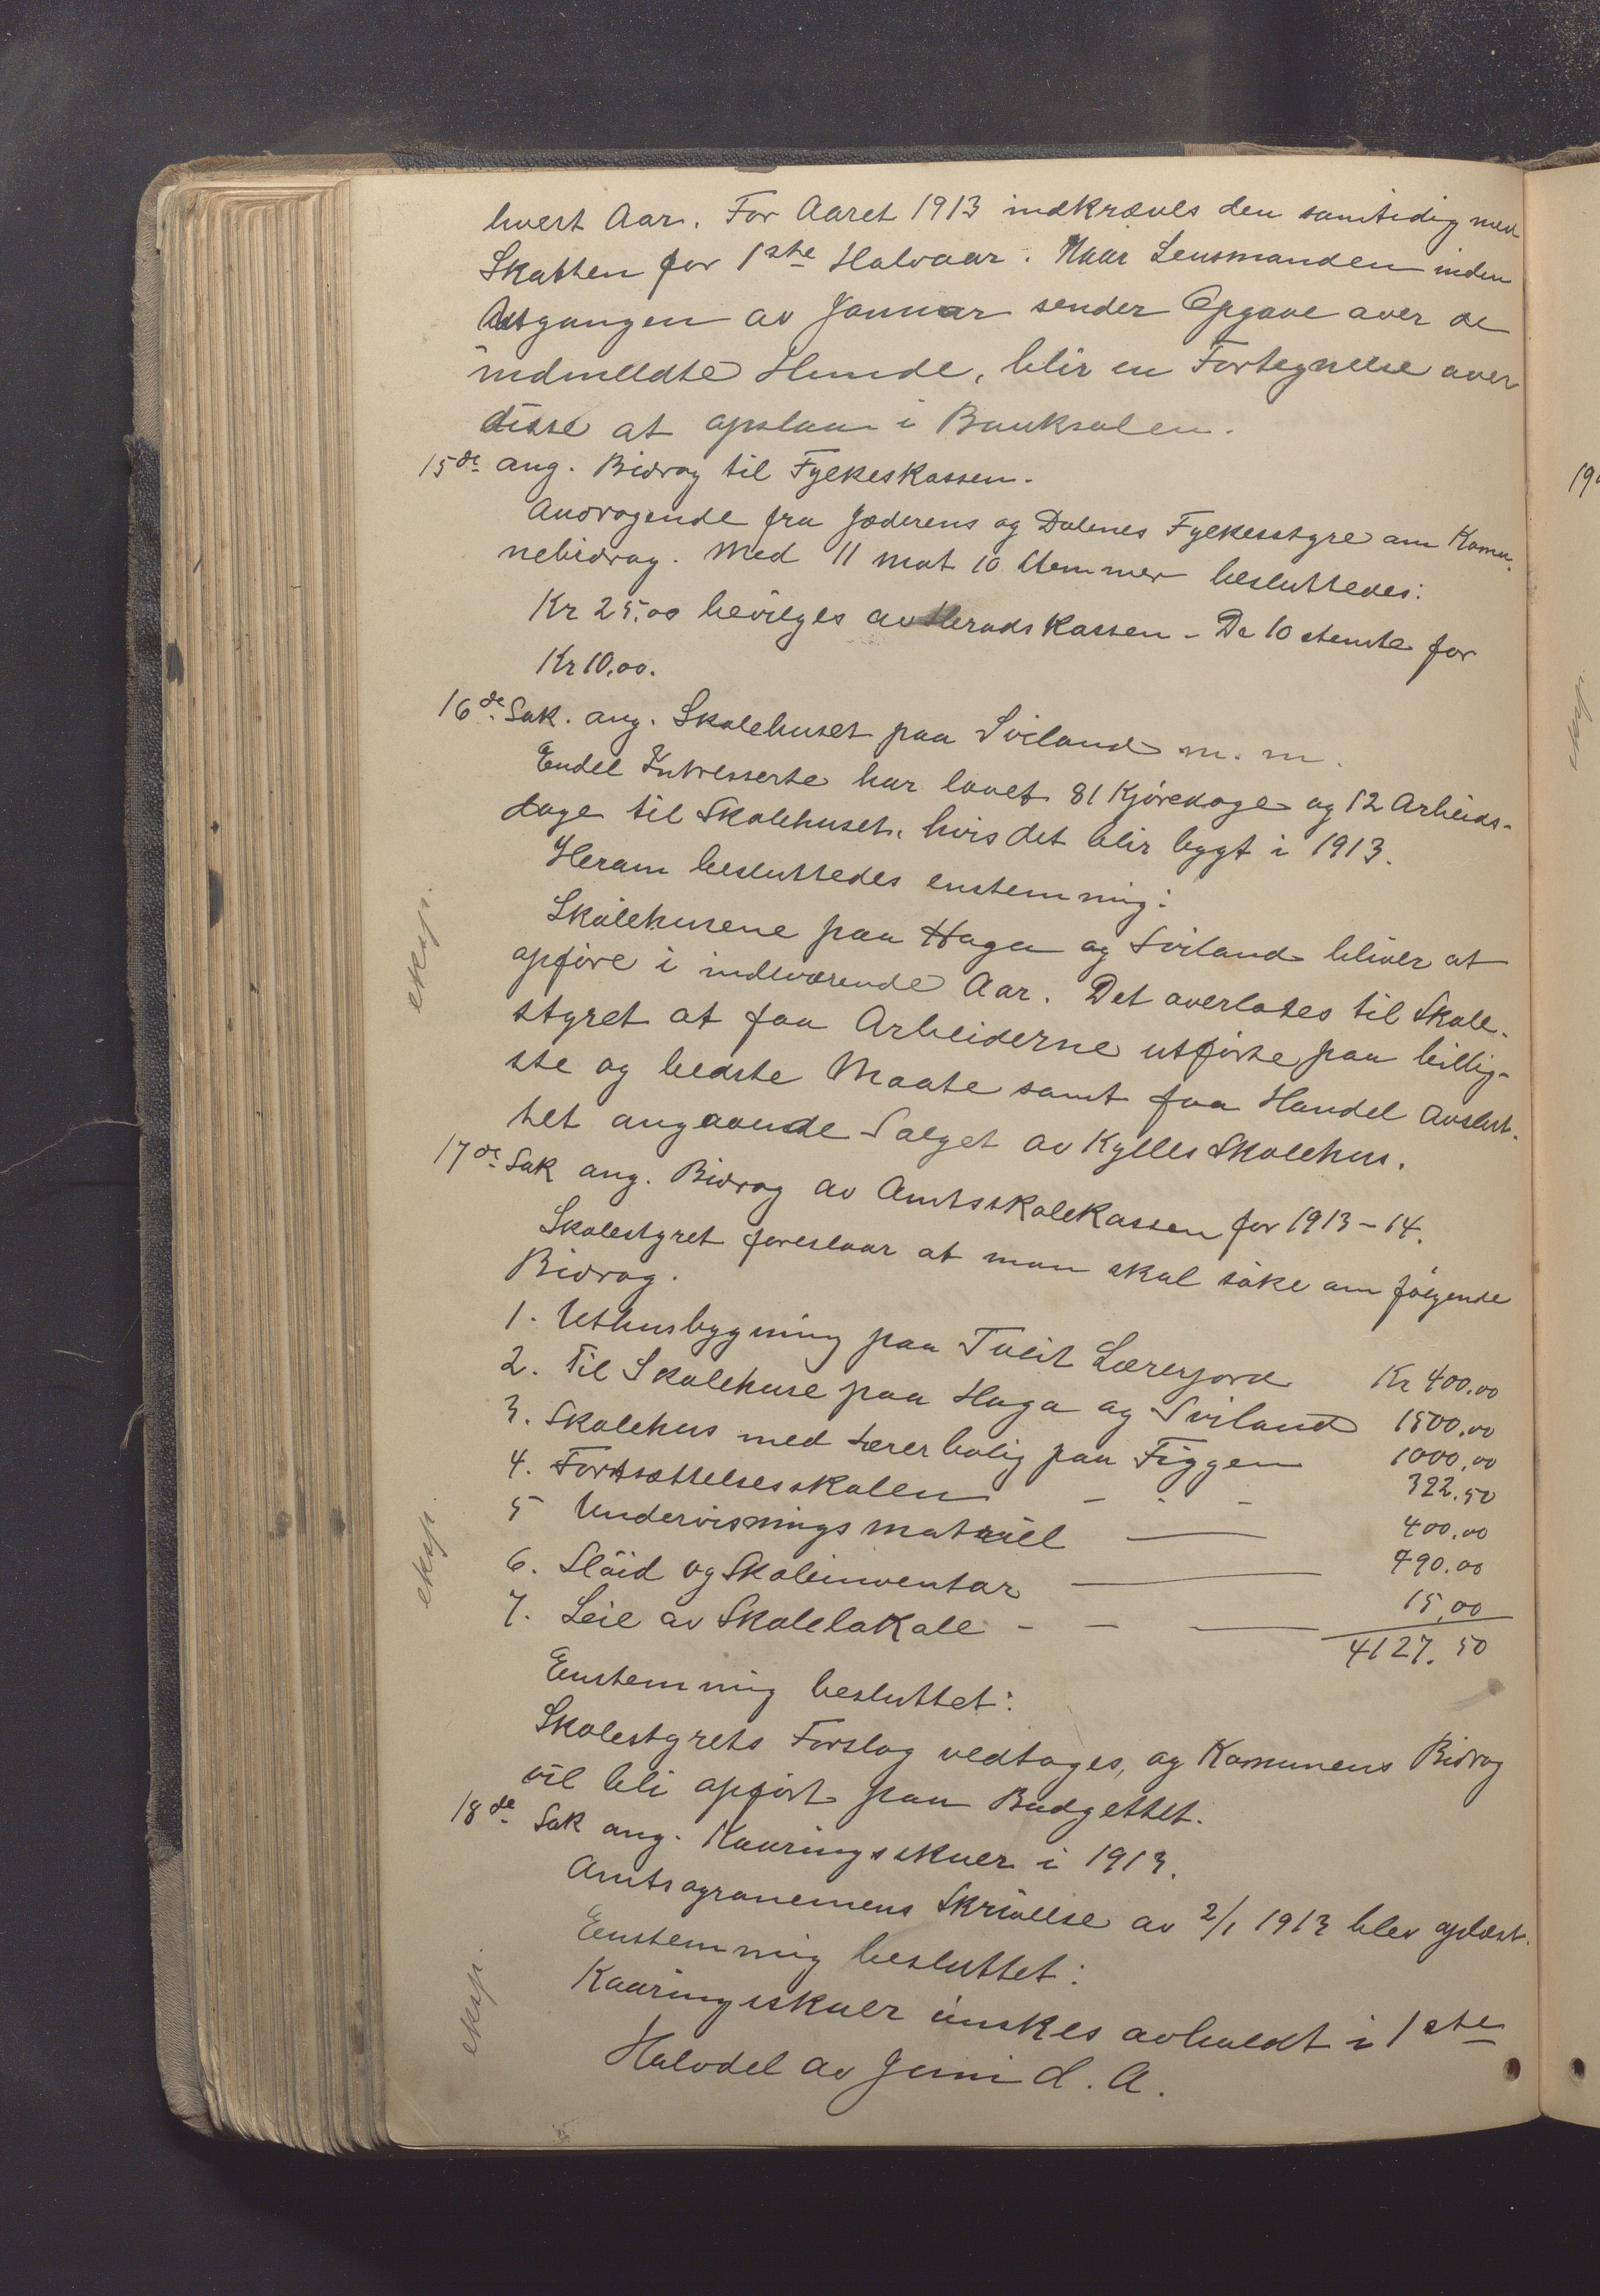 hvert Aar. For Aaret 1913 indkræves den samtidig med
Skatten for 1ste Halvaar. Naar Lensmanden inden
Utgangen av Januar sender Opgave over de
indmeldte Hunde, blir en Fortegnelse over
disse at opslaa i Banksalen.
15de ang. Bidrag til Fylkeskassen.
Andragende fra Jæderens og Dalenes Fylkesstyre om Komu-
nebidrag. Med 11 mot 10 Stemmer besluttedes:
Kr 25.00 bevilges av Heradskassen - De 10 stemte for
Kr 10.00.
16de Sak. ang. Skolehuset paa Sviland m. m.
Endel Intresserte har lovet 81 Kjøredage og 12 Arbeids-
dage til Skolehuset, hvis det blir bygt i 1913.
Herom besluttedes enstemmig:
eksp.
Skolehusene paa Haga og Sviland bliver at
opføre i indeværende Aar. Det overlates til Skole-
styret at faa Arbeiderne utførte paa billig-
ste og bedste Maate samt faa Handel avslut-
tet angaaende Salget av Kylles Skolehus.
17de Sak ang. Bidrag av Amtsskolekassen for 1913-14.
Skolestyret foreslaar at man skal søke om følgende
Bidrag.
1. Uthusbygning paa Tveit Lærerjord Kr 400.00
2. Til Skolehuse paa Haga og Sviland 1500.00
3. Skolehus med Lærerbolig paa Figgen 1000.00
4. Fortsættelsesskolen - - - 322.50
5 Undervisnings matriel — 400.00
eksp.
6. Slöid og Skoleinventar — 490.00
7. Leie av Skolelokale - - — 15.00
4127.50
Enstemmig besluttet:
Skolestyrets Forslag vedtages, og Komunens Bidrag
vil bli opført paa Budgettet.
18de Sak ang. Kaaringsskuer i 1913.
Amtsagronomens Skrivelse av 2/1 1913 blev oplæst.
Enstemmig besluttet:
eksp.
Kaaringsskuer ønskes avholdt i 1ste
Halvdel av Juni d. A.
190
eksp.